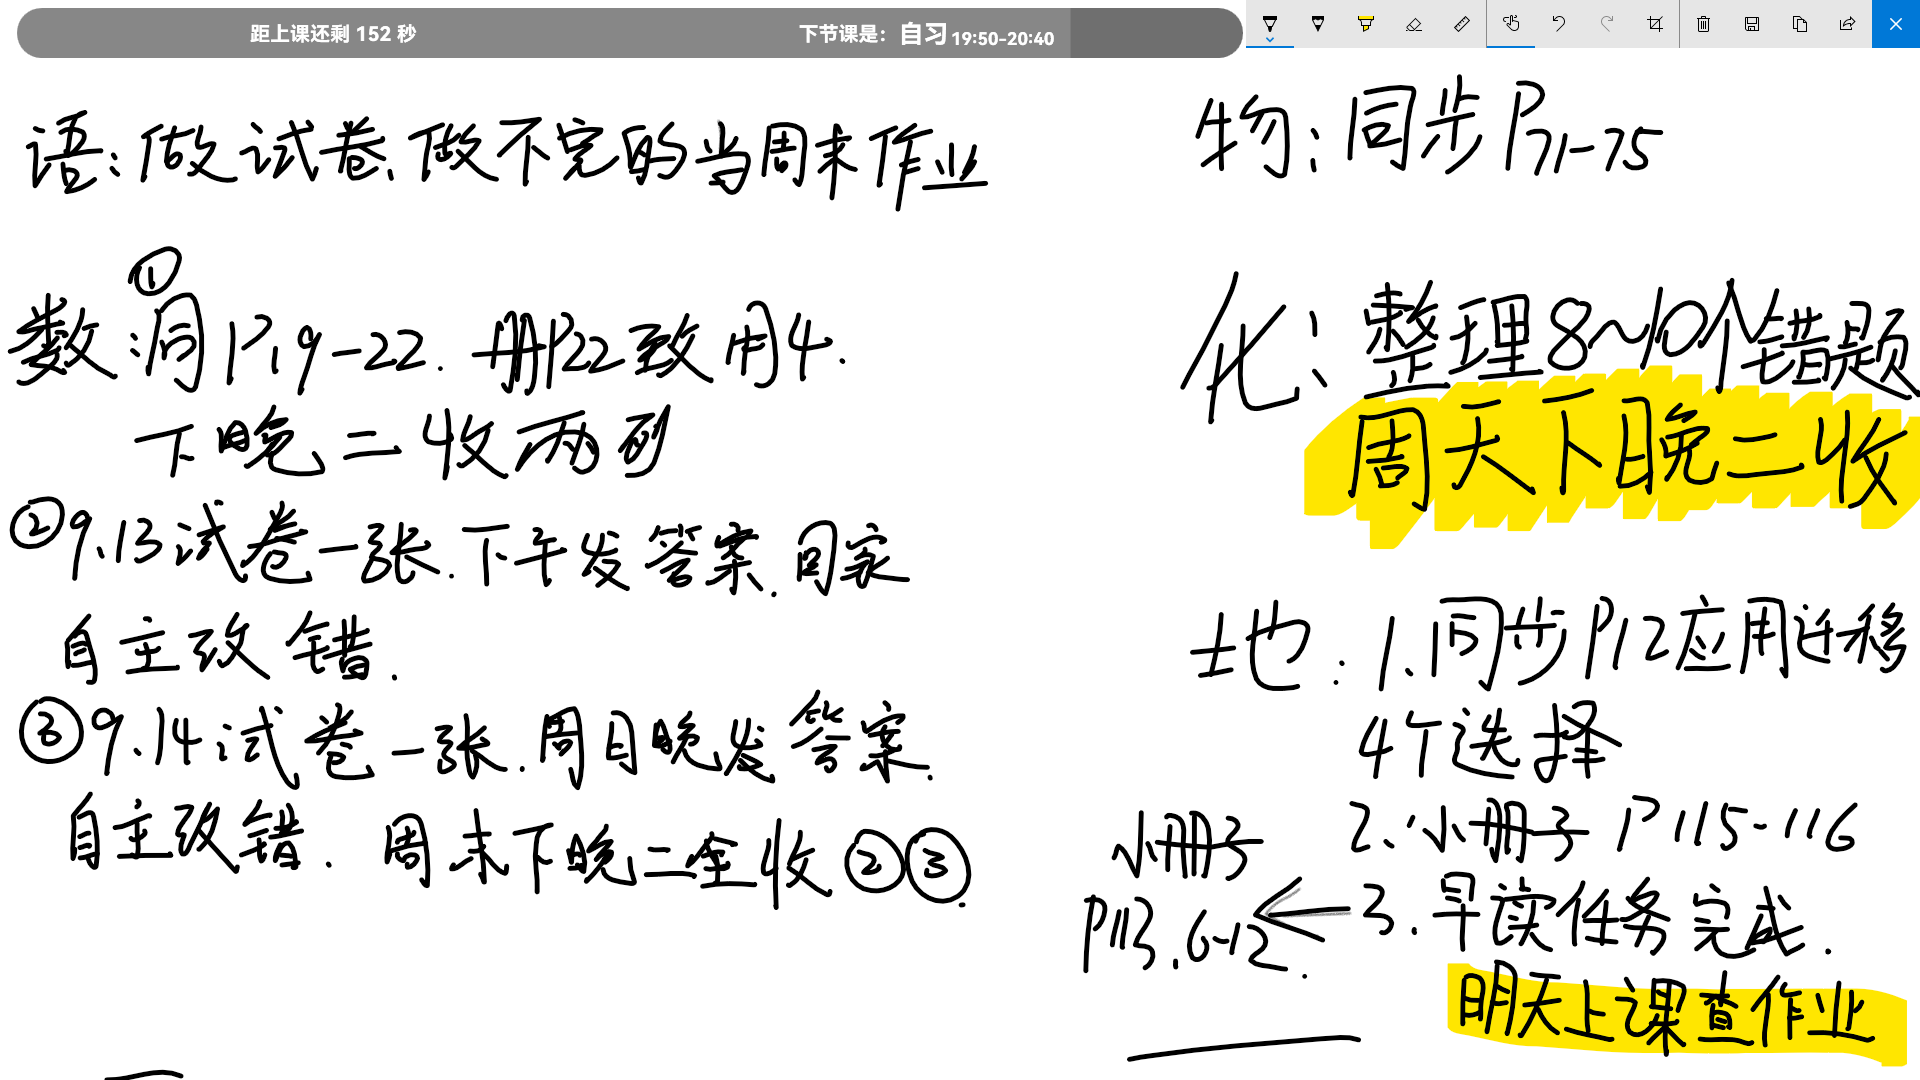 距上课还剩 152 秒
下节课是：自习 19:50-20:40
语：做试卷、做不完的当周末作业
数：①同P19-22. 册P22致用4.
下晚二收两项
②9.13试卷一张.下午发答案.回家
自主改错.
③9.14试卷一张.周日晚发答案.
自主改错. 周末下晚二全收②③.
物：同步P71-75
化：整理8~10个错题
周天下晚二收
地：1.同步P12应用迁移
4个选择
2.小册子P115-116
3.早读任务完成.
小册子
P113.6-12.
明天上课查作业